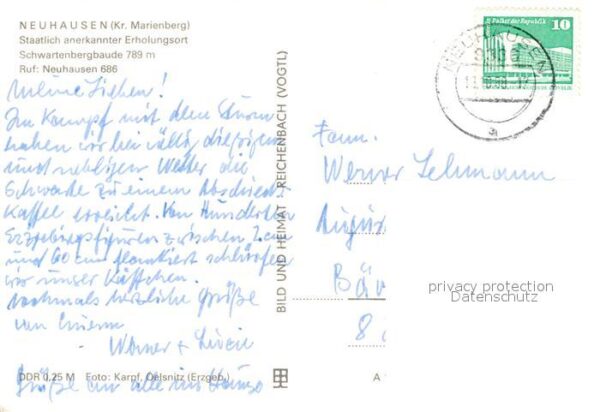 NEUHAUSEN (Kr. Marienberg)
Staatlich anerkannter Erholungsort
Schwartenbergbaude 789 m
Ruf: Neuhausen 686
Meine Lieben!
Im Kampf mit dem Sturm
haben wir bei völlig diesigem
und nebligen Wetter die
Schwarte zu einem Abschieds
Kaffee erreicht. Von Hunderten
Erzgebirgsfiguren zwischen 2 cm
und 60 cm flankiert schlürfen
wir unser Käffchen.
Nochmals herzliche Grüße
von Eurem
Werner +
Grüße an alle ins Haus
DDR 0,25 M Foto: Karpf, Oelsnitz (Erzgeb.)
BILD UND HEIMAT · REICHENBACH (VOGTL)
Palast der Republik
10
NEUHAUSEN
a
Fam.
Werner Lehmann
8
A
privacy protection
Datenschutz